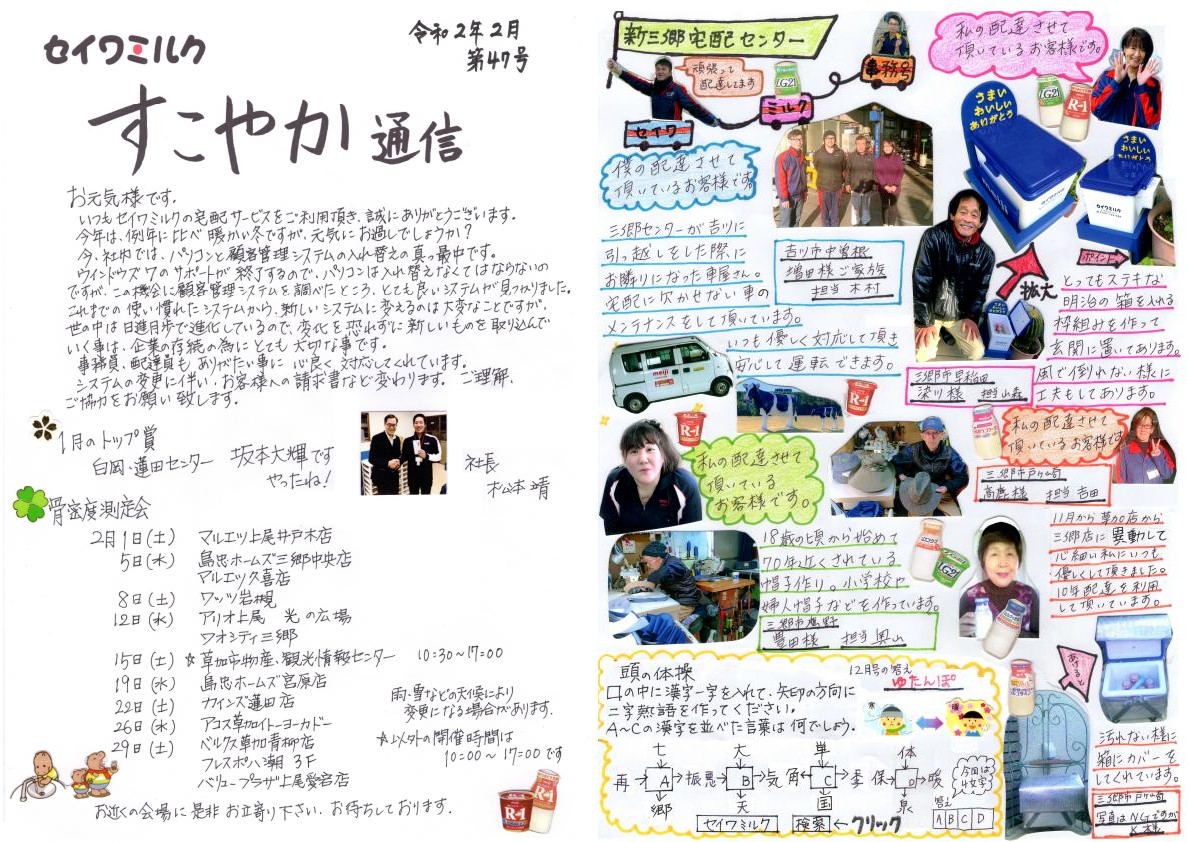 セイワミルク
令和2年2月
第47号
すこやか通信
お元気様です。
いつもセイワミルクの宅配サービスをご利用頂き、誠にありがとうございます。
今年は、例年に比べ暖かい冬ですが、元気にお過しでしょうか？
今、社内では、パソコンと顧客管理システムの入れ替えの真っ最中です。
ウィンドウズ7のサポートが終了するので、パソコンは入れ替えなくてはならないの
ですが、この機会に顧客管理システムを調べたところ、とても良いシステムが見つかりました。
これまでの使い慣れたシステムから、新しいシステムに変えるのは大変なことですが、
世の中は日進月歩で進化しているので、変化を恐れずに新しいものを取り込んで
いく事は、企業の存続の為にとても大切な事です。
事務員、配達員もありがたい事に心良く対応してくれています。
システムの変更に伴い、お客様への請求書など変わります。ご理解、
ご協力をお願い致します。
1月のトップ賞
白岡・蓮田センター 坂本大輝です
やったね！
社長
松本靖
骨密度測定会
2月1日(土) マルエツ上尾井戸木店
5日(水) 島忠ホームズ三郷中央店
マルエツ久喜店
8日(土) ワッツ岩槻
12日(水) アリオ上尾 光の広場
ワオシティ三郷
15日(土) ☆草加市物産、観光情報センター 10:30~17:00
19日(水) 島忠ホームズ宮原店
22日(土) カインズ蓮田店
26日(水) アコス草加イトーヨーカドー
29日(土) ベルクス草加青柳店
フレスポ八潮 3F
バリュープラザ上尾愛宕店
雨、雪などの天候により
変更になる場合があります。
☆以外の開催時間は
10:00~17:00です
お近くの会場に是非お立寄り下さい。お待ちしております。
新三郷宅配センター
頑張って
配達してます
セイワ
ミルク
事務号
私の配達させて
頂いているお客様です。
うまい
おいしい
ありがとう
うまい
おいしい
ありがとう
僕の配達させて
頂いているお客様です。
三郷センターが吉川に
引っ越しをした際に
お隣りになった車屋さん。
宅配に欠かせない車の
メンテナンスをして頂いています。
いつも優しく対応して頂き
安心して運転できます。
吉川市中曽根
増田様ご家族
担当 木村
ポイント
拡大
とってもステキな
明治の箱を入れる
枠組みを作って
玄関に置いてあります。
風で倒れない様に
工夫もしてあります。
三郷市早稲田
染川様 担当 山森
meiji
R-1
LG21
私の配達させて
頂いている
お客様です。
18歳の頃から始めて
70年近くされている
帽子作り。小学校や
婦人帽子などを作っています。
三郷市鷹野
豊田様 担当 奥山
私の配達させて
頂いているお客様です
三郷市戸ヶ崎
高鹿様 担当 吉田
11月から草加店から
三郷店に異動して
心細い私にいつも
優しくして頂きました。
10年配達を利用
して頂いています。
あけると
汚れない様に
箱にカバーを
してくれています。
三郷市戸ヶ崎
写真はNGですが
K様
頭の体操
12月号の答え
ゆたんぽ
口の中に漢字一字を入れて、矢印の方向に
二字熟語を作ってください。
A~Cの漢字を並べた言葉は何でしょう。
寒
暖
七 大 単 体
再→A→振 恩→B→気 角→C→圭 保→D→暖
郷 天 国 泉
今回は
4文字
答え
A B C D
セイワミルク 検索 ←クリック